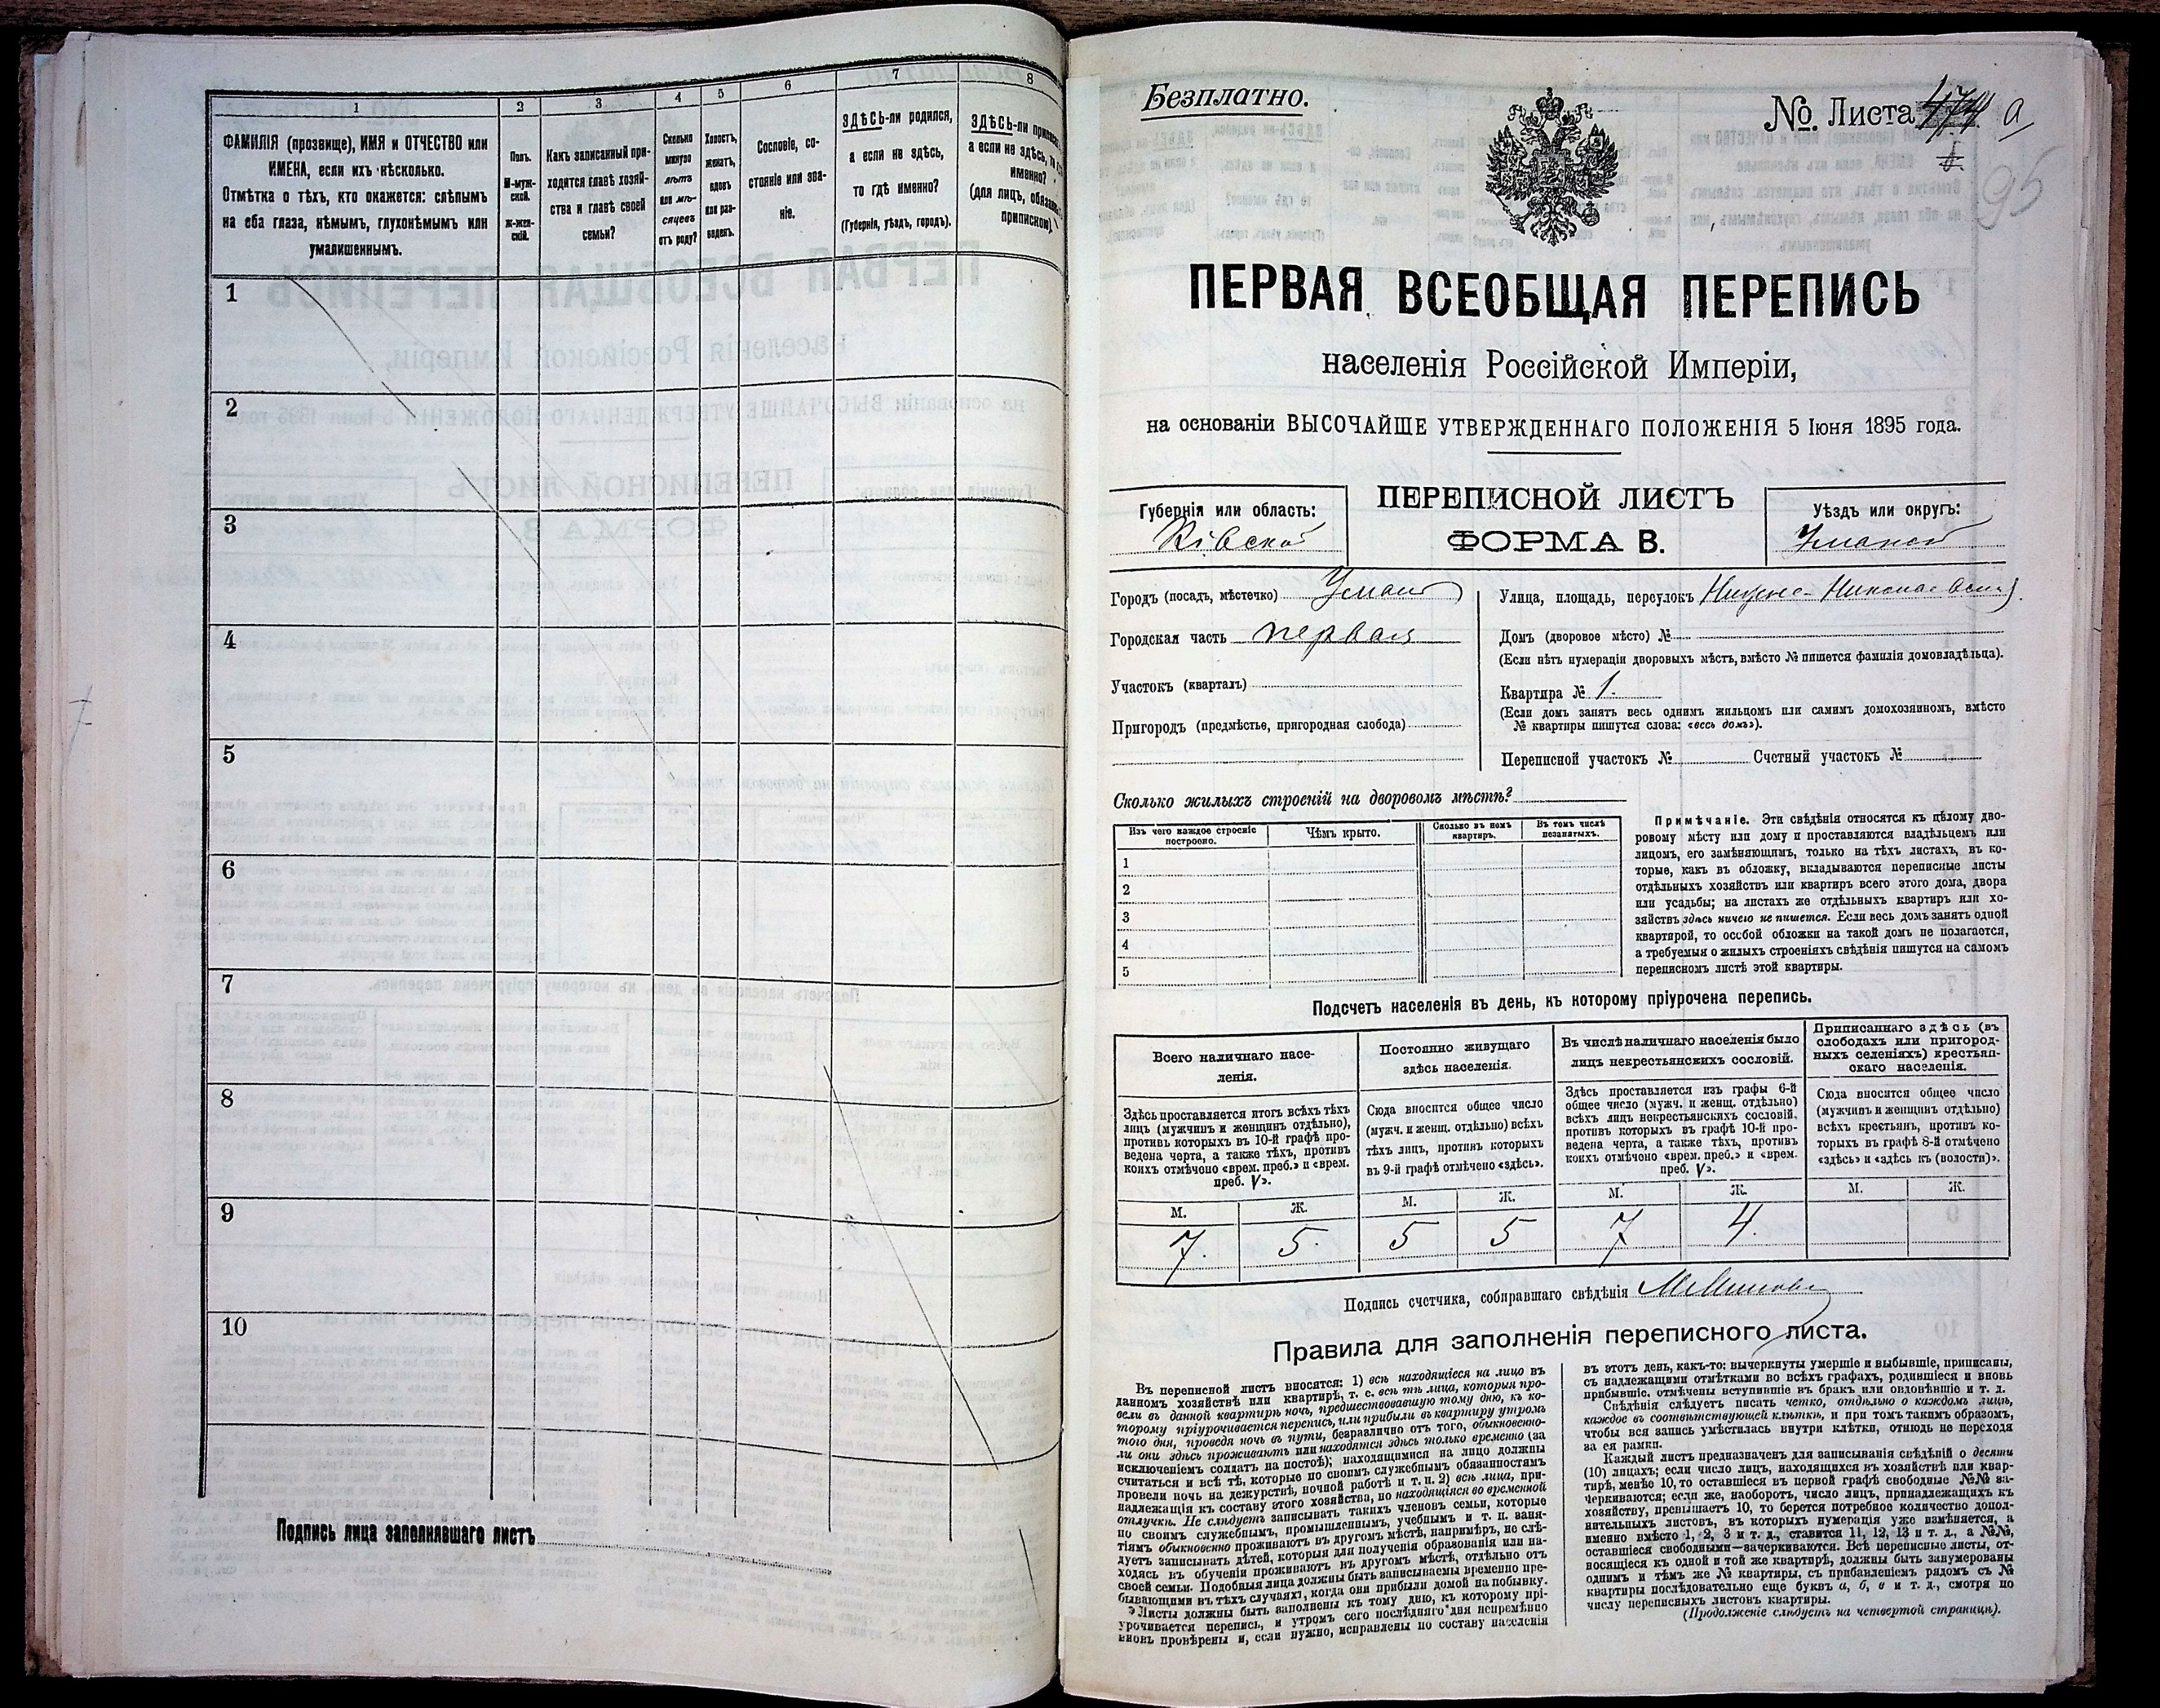 1
2
3
4
5
6
7
8
ФАМИЛІЯ (прозвище), ИМЯ и ОТЧЕСТВО или
ИМЕНА, если ихъ нѣсколько.
Отмѣтка о тѣхъ, кто окажется: слѣпымъ
на оба глаза, нѣмымъ, глухонѣмымъ или
умалишеннымъ.
Полъ.
М-муж-
ской.
Ж-жен-
скій.
Какъ записанный при-
ходится главѣ хозяй-
ства и главѣ своей
семьи?
Сколько
минуло
лѣтъ
или мѣ-
сяцевъ
отъ роду?
Холостъ,
женатъ,
вдовъ
или раз-
веденъ.
Сословіе, со-
стояніе или зва-
ніе.
ЗДѢСЬ-ли родился,
а если не здѣсь,
то гдѣ именно?
(Губернія, уѣздъ, городъ).
ЗДѢСЬ-ли
а если не здѣсь,
именно?
(для лицъ,
припискою)
1
2
3
4
5
6
7
8
9
10
Подпись лица заполнявшаго листъ
Безплатно.
№ Листа 474 а
95
ПЕРВАЯ ВСЕОБЩАЯ ПЕРЕПИСЬ
населенія Россійской Имперіи,
на основаніи ВЫСОЧАЙШЕ УТВЕРЖДЕННАГО ПОЛОЖЕНІЯ 5 Іюня 1895 года.
Губернія или область:
Кіевской
ПЕРЕПИСНОЙ ЛИСТЪ
ФОРМА В.
Уѣздъ или округъ:
Уманской
Городъ (посадъ, мѣстечко) Умань
Городская часть первая
Участокъ (кварталъ)
Пригородъ (предмѣстье, пригородная слобода)
Улица, площадь, переулокъ Нижне-Николаевская
Домъ (дворовое мѣсто) №
(Если нѣтъ нумераціи дворовыхъ мѣстъ, вмѣсто № пишется фамилія домовладѣльца).
Квартира № 1.
(Если домъ занятъ весь однимъ жильцомъ или самимъ домохозяиномъ, вмѣсто
№ квартиры пишутся слова: «весь домъ»).
Переписной участокъ № Счетный участокъ №
Сколько жилыхъ строеній на дворовомъ мѣстѣ?
Изъ чего каждое строеніе
построено.
Чѣмъ крыто.
Сколько въ немъ
квартиръ.
Въ томъ числѣ
незанятыхъ.
1
2
3
4
5
Примѣчаніе. Эти свѣдѣнія относятся къ цѣлому дво-
ровому мѣсту или дому и проставляются владѣльцемъ или
лицомъ, его замѣняющимъ, только на тѣхъ листахъ, въ ко-
торые, какъ въ обложку, вкладываются переписные листы
отдѣльныхъ хозяйствъ или квартиръ всего этого дома, двора
или усадьбы; на листахъ же отдѣльныхъ квартиръ или хо-
зяйствъ здѣсь ничего не пишется. Если весь домъ занятъ одной
квартирой, то особой обложки на такой домъ не полагается,
а требуемыя о жилыхъ строеніяхъ свѣдѣнія пишутся на самомъ
переписномъ листѣ этой квартиры.
Подсчетъ населенія въ день, къ которому пріурочена перепись.
Всего наличнаго насе-
ленія.
Здѣсь проставляется итогъ всѣхъ тѣхъ
лицъ (мужчинъ и женщинъ отдѣльно),
противъ которыхъ въ 10-й графѣ про-
ведена черта, а также тѣхъ, противъ
коихъ отмѣчено «врем. преб.» и «врем.
преб. V».
Постоянно живущаго
здѣсь населенія.
Сюда вносится общее число
(мужч. и женщ. отдѣльно) всѣхъ
тѣхъ лицъ, противъ которыхъ
въ 9-й графѣ отмѣчено «здѣсь».
Въ числѣ наличнаго населенія было
лицъ некрестьянскихъ сословій.
Здѣсь проставляется изъ графы 6-й
общее число (мужч. и женщ. отдѣльно)
всѣхъ лицъ некрестьянскихъ сословій,
противъ которыхъ въ графѣ 10-й про-
ведена черта, а также тѣхъ, противъ
коихъ отмѣчено «врем. преб.» и «врем.
преб. V».
Приписаннаго здѣсь (въ
слободахъ или пригород-
ныхъ селеніяхъ) крестьян-
скаго населенія.
Сюда вносится общее число
(мужчинъ и женщинъ отдѣльно)
всѣхъ крестьянъ, противъ ко-
торыхъ въ графѣ 8-й отмѣчено
«здѣсь» и «здѣсь къ (волости)».
М. Ж. М. Ж. М. Ж. М. Ж.
7. 5. 5 5 7 4
Подпись счетчика, собиравшаго свѣдѣнія
Правила для заполненія переписного листа.
Въ переписной листъ вносятся: 1) всѣ находящіеся на лицо въ
данномъ хозяйствѣ или квартирѣ, т. е. всѣ тѣ лица, которыя про-
вели въ данной квартирѣ ночь, предшествовавшую тому дню, къ ко-
торому пріурочивается перепись, или прибыли въ квартиру утромъ
того дня, проведя ночь въ пути, безразлично отъ того, обыкновенно-
ли они здѣсь проживаютъ или находятся здѣсь только временно (за
исключеніемъ солдатъ на постоѣ); находящимися на лицо должны
считаться и всѣ тѣ, которые по своимъ служебнымъ обязанностямъ
провели ночь на дежурствѣ, ночной работѣ и т. п. 2) всѣ лица, при-
надлежащія къ составу этого хозяйства, но находящіяся во временной
отлучкѣ. Не слѣдуетъ записывать такихъ членовъ семьи, которые
по своимъ служебнымъ, промышленнымъ, учебнымъ и т. п. заня-
тіямъ обыкновенно проживаютъ въ другомъ мѣстѣ, напримѣръ, не слѣ-
дуетъ записывать дѣтей, которыя для полученія образованія или на-
ходясь въ обученіи проживаютъ въ другомъ мѣстѣ, отдѣльно отъ
своей семьи. Подобныя лица должны быть записываемы временно пре-
бывающими въ тѣхъ случаяхъ, когда они прибыли домой на побывку.
Листы должны быть заполнены къ тому дню, къ которому прі-
урочивается перепись, и утромъ сего послѣдняго дня непремѣнно
вновь провѣрены и, если нужно, исправлены по составу населенія
въ этотъ день, какъ-то: вычеркнуты умершіе и выбывшіе, приписаны,
съ надлежащими отмѣтками во всѣхъ графахъ, родившіеся и вновь
прибывшіе, отмѣчены вступившіе въ бракъ или овдовѣвшіе и т. д.
Свѣдѣнія слѣдуетъ писать четко, отдѣльно о каждомъ лицѣ,
каждое въ соотвѣтствующей клѣткѣ, и при томъ такимъ образомъ,
чтобы вся запись умѣстилась внутри клѣтки, отнюдь не переходя
за ея рамки.
Каждый листъ предназначенъ для записыванія свѣдѣній о десяти
(10) лицахъ; если число лицъ, находящихся въ хозяйствѣ или квар-
тирѣ, менѣе 10, то оставшіеся въ первой графѣ свободные №№ за-
черкиваются; если же, наоборотъ, число лицъ, принадлежащихъ къ
хозяйству, превышаетъ 10, то берется потребное количество допол-
нительныхъ листовъ, въ которыхъ нумерація уже измѣняется, а
именно вмѣсто 1, 2, 3 и т. д., ставится 11, 12, 13 и т. д., а №№,
оставшіеся свободными—зачеркиваются. Всѣ переписные листы, от-
носящіеся къ одной и той же квартирѣ, должны быть занумерованы
однимъ и тѣмъ же № квартиры, съ прибавленіемъ рядомъ съ №
квартиры послѣдовательно еще буквъ а, б, в и т. д., смотря по
числу переписныхъ листовъ квартиры.
(Продолженіе слѣдуетъ на четвертой страницѣ).